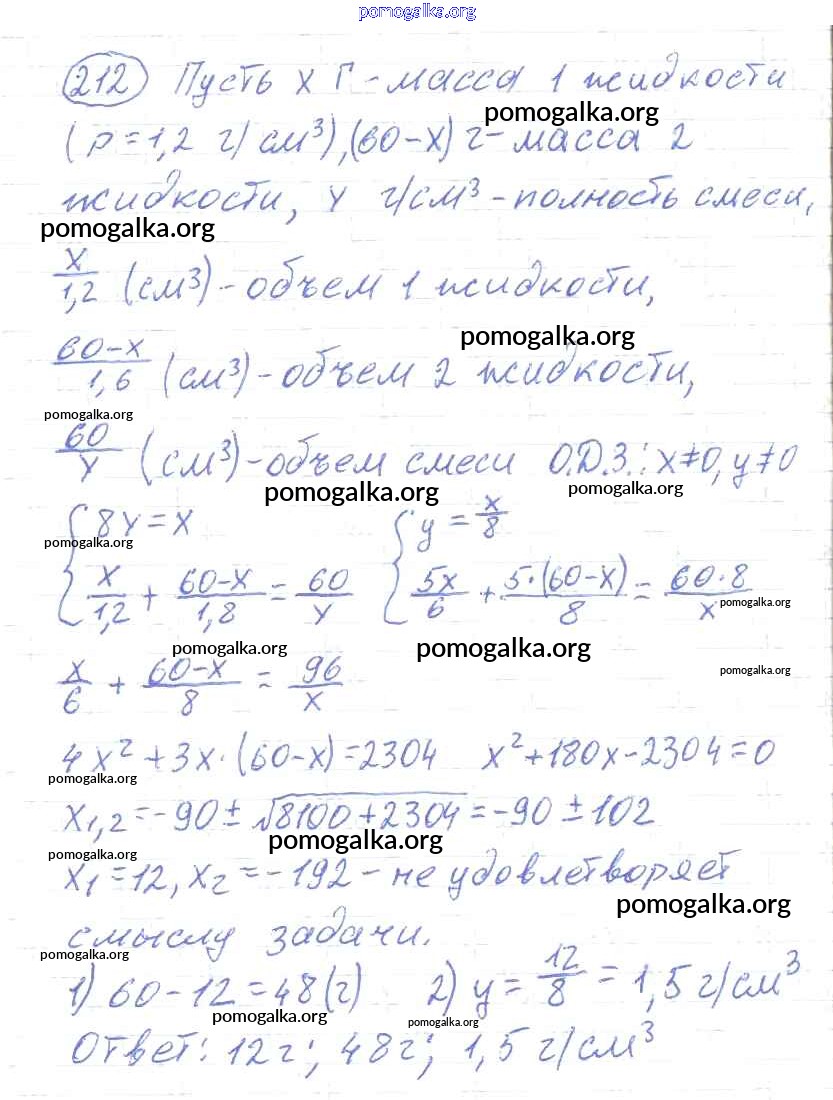 pomogalka.org
212 Пусть x г - масса 1 жидкости
pomogalka.org
(ρ=1,2 г/см³), (60-x) г - масса 2
жидкости, y г/см³ - полность смеси,
pomogalka.org
x/1,2 (см³) - объем 1 жидкости,
pomogalka.org
60-x/1,6 (см³) - объем 2 жидкости,
pomogalka.org
60/y (см³) - объем смеси О.Д.З.: x≠0, y≠0
pomogalka.org pomogalka.org
{ 8y=x { y = x/8
pomogalka.org
x/1,2 + 60-x/1,8 = 60/y 5x/6 + 5·(60-x)/8 = 60·8/x
pomogalka.org
pomogalka.org pomogalka.org
pomogalka.org
x/6 + 60-x/8 = 96/x
4x²+3x·(60-x)=2304 x²+180x-2304=0
pomogalka.org
x1,2=-90±√8100+2304=-90±102
pomogalka.org
pomogalka.org
x1=12, x2=-192 - не удовлетворяет
pomogalka.org
смыслу задачи.
pomogalka.org
1) 60-12=48(г) 2) y = 12/8 = 1,5 г/см³
pomogalka.org pomogalka.org
Ответ: 12г; 48г; 1,5 г/см³